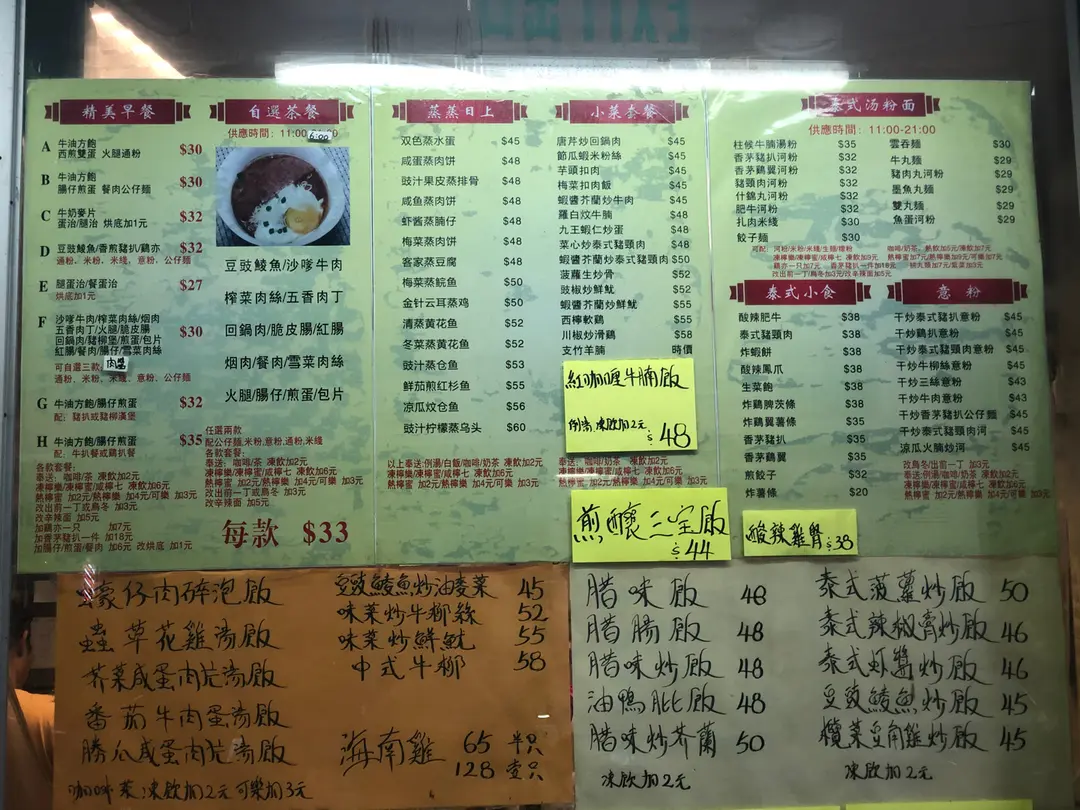 EXIT 出口
精美早餐
A 牛油方飽
西煎雙蛋 火腿通粉 $30
B 牛油方飽
腸仔煎蛋 餐肉公仔麵 $30
C 牛奶麥片
蛋治/腿治 烘底加1元 $32
D 豆豉鯪魚/香煎豬扒/鷄亦 $32
通粉、米粉、米綫、意粉、公仔麵
E 腿蛋治/餐蛋治 $27
烘底加1元
F 沙嗲牛肉/榨菜肉絲/烟肉
五香肉丁/火腿/脆皮腸
回鍋肉/豬柳堡/煎蛋/包片 $30
紅腸/餐肉/腸仔/雪菜肉絲
可自選三款
通粉、米粉、米綫、意粉、公仔麵
G 牛油方飽/腸仔煎蛋 $32
配：豬扒或豬柳漢堡
H 牛油方飽/腸仔煎蛋 $35
配：牛扒餐或鷄扒餐
各款套餐:
奉送: 咖啡/奶茶 凍飲加2元
凍檸樂/凍檸蜜/咸檸七 凍飲加6元
熱檸蜜 加2元/熱檸樂 加4元/可樂 加3元
改出前一丁或烏冬 加3元
改辛辣面 加5元
加鷄亦一只 加7元
加香茅豬扒一件 加18元
加腸仔/煎蛋/餐肉 加6元 改烘底 加1元
自選茶餐
供應時間: 11:00-21:00
6:00
豆豉鯪魚/沙嗲牛肉
榨菜肉絲/五香肉丁
回鍋肉/脆皮腸/紅腸
烟肉/餐肉/雪菜肉絲
火腿/腸仔/煎蛋/包片
任選兩款
配公仔麵,米粉,意粉,通粉,米綫
各款套餐:
奉送: 咖啡/奶茶 凍飲加2元
凍檸樂/凍檸蜜/咸檸七 凍飲加6元
熱檸蜜 加2元/熱檸樂 加4元/可樂 加3元
改出前一丁或烏冬 加3元
改辛辣面 加5元
每款 $33
蒸蒸日上
双色蒸水蛋 $45
咸蛋蒸肉饼 $48
豉汁果皮蒸排骨 $48
咸鱼蒸肉饼 $48
虾酱蒸腩仔 $48
梅菜蒸肉饼 $48
客家蒸豆腐 $48
梅菜蒸鲩鱼 $50
金针云耳蒸鸡 $50
清蒸黄花鱼 $52
冬菜蒸黄花鱼 $52
豉汁蒸仓鱼 $53
鲜茄煎红杉鱼 $55
凉瓜炆仓鱼 $56
豉汁柠檬蒸乌头 $60
以上奉送:例湯/白飯/咖啡/奶茶 凍飲加2元
凍檸樂/凍檸蜜/咸檸七 凍飲加6元
熱檸蜜 加2元/熱檸樂 加4元/可樂 加3元
小菜套餐
唐芹炒回鍋肉 $45
節瓜蝦米粉絲 $45
芋頭扣肉 $45
梅菜扣肉飯 $45
蝦醬芥蘭炒牛肉 $45
羅白炆牛腩 $48
九王蝦仁炒蛋 $48
菜心炒泰式豬頸肉 $48
蝦醬芥蘭炒泰式豬頸肉 $50
菠蘿生炒骨 $52
豉椒炒鮮魷 $52
蝦醬芥蘭炒鮮魷 $55
西檸軟鷄 $55
川椒炒滑鷄 $58
支竹羊腩 時價
紅咖喱牛腩飯
例湯,凍飲加2元 $48
奉送: 咖啡/奶茶 凍飲加2元
凍檸樂/凍檸蜜/咸檸七 凍飲加6元
熱檸蜜 加2元/熱檸樂 加4元/可樂 加3元
煎釀三宝飯
$44
泰式汤粉面
供應時間: 11:00-21:00
柱候牛腩湯粉 $35
香茅豬扒河粉 $32
香茅鷄翼河粉 $32
豬頸肉河粉 $32
什錦丸河粉 $32
肥牛河粉 $32
扎肉米綫 $30
餃子麵 $30
雲吞麵 $30
牛丸麵 $29
豬肉丸河粉 $29
墨魚丸麵 $29
雙丸麵 $29
魚蛋河粉 $29
可配: 河粉/米粉/米綫/生麵/幼粉 咖啡/奶茶、熱飲加5元/凍飲加7元
泰式小食
酸辣肥牛 $38
泰式豬頸肉 $38
炸蝦餅 $38
酸辣鳳爪 $38
生菜飽 $38
炸鷄脾茨條 $38
炸鷄翼薯條 $35
香茅豬扒 $35
香茅鷄翼 $35
煎餃子 $32
炸薯條 $20
酸辣雞腎 $38
意粉
干炒泰式豬扒意粉 $45
干炒鷄扒意粉 $45
干炒泰式豬頸肉意粉 $45
干炒牛柳絲意粉 $45
干炒三絲意粉 $43
干炒牛肉意粉 $43
干炒香茅豬扒公仔麵 $45
干炒泰式豬頸肉河 $45
凉瓜火腩炒河 $45
改烏冬/出前一丁 加3元
奉送:例湯/咖啡/奶茶 凍飲加2元
凍檸樂/凍檸蜜/咸檸七 凍飲加6元
熱檸蜜 加2元/熱檸樂 加4元/可樂 加3元
蠔仔肉碎泡飯
蟲草花雞湯飯
芥菜咸蛋肉片湯飯
番茄牛肉蛋湯飯
勝瓜咸蛋肉片湯飯
咖啡 茶 凍飲加2元 可樂加3元
豆豉鯪魚炒油麥菜 45
味菜炒牛柳絲 52
味菜炒鮮魷 55
中式牛柳 58
海南雞 65 半只
128 壹只
腊味飯 48
腊腸飯 48
腊味炒飯 48
油鴨肶飯 48
腊味炒芥蘭 50
凍飲加2元
泰式菠蘿炒飯 50
泰式辣椒膏炒飯 46
泰式虾醬炒飯 46
豆豉鯪魚炒飯 45
欖菜豆角雞炒飯 45
凍飲加2元